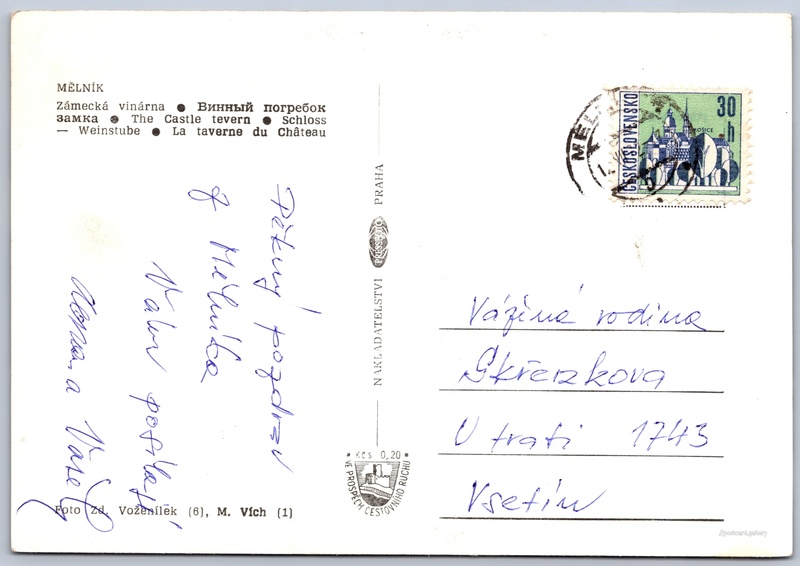 MĚLNÍK
Zámecká vinárna ● Винный погребок
замка ● The Castle tevern ● Schloss
— Weinstube ● La taverne du Château
Pěkný pozdrav
z Mělníka
Vám posílají
a
NAKLADATELSTVÍ PRESSFOTO PRAHA
Kčs 0,20
VE PROSPĚCH CESTOVNÍHO RUCHU
Foto Zd. Voženílek (6), M. Vích (1)
ČESKOSLOVENSKO
30 h
KOŠICE
Vážená rodina
Skřerzkova
U trati 1743
Vsetín